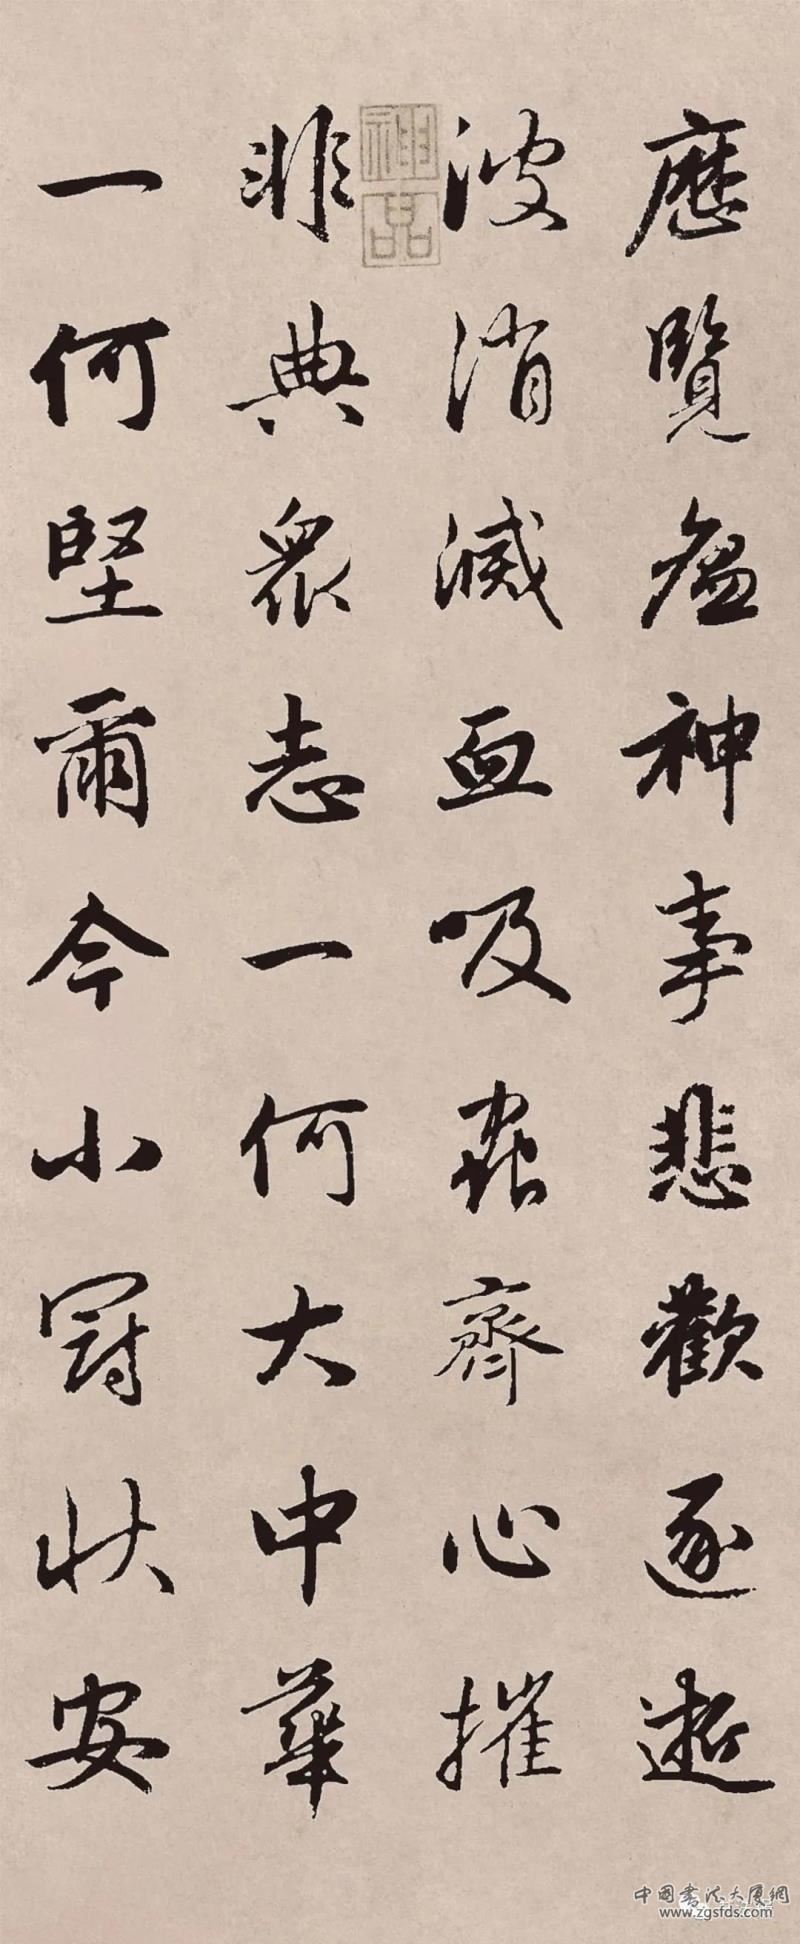 歷覽瘟神事悲歡逐逝
波消滅血吸蟲齊心摧
非典眾志一何大中華
一何堅爾今小冠狀安
神品
中国書法大廈網
www.zgsfds.com